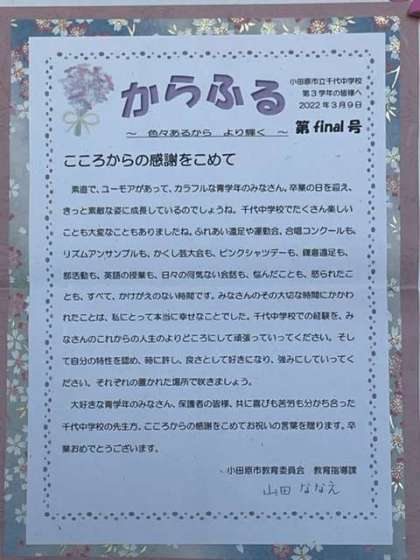 からふる
小田原市立千代中学校
第3学年の皆様へ
2022年3月9日
～ 色々あるから より輝く ～
第final号
こころからの感謝をこめて
素直で、ユーモアがあって、カラフルな青学年のみなさん。卒業の日を迎え、
きっと素敵な姿に成長しているのでしょうね。千代中学校でたくさん楽しい
ことも大変なこともありましたね。ふれあい遠足や運動会、合唱コンクールも、
リズムアンサンブルも、かくし芸大会も、ピンクシャツデーも、鎌倉遠足も、
部活動も、英語の授業も、日々の何気ない会話も、悩んだことも、怒られたこ
とも、すべて、かけがえのない時間です。みなさんのその大切な時間にかかわ
れたことは、私にとって本当に幸せなことでした。千代中学校での経験を、み
なさんのこれからの人生のよりどころにして頑張っていってください。そし
て自分の特性を認め、時に許し、良さとして好きになり、強みにしていってく
ださい。それぞれの置かれた場所で咲きましょう。
大好きな青学年のみなさん、保護者の皆様、共に喜びも苦労も分かち合った
千代中学校の先生方、こころからの感謝をこめてお祝いの言葉を贈ります。卒
業おめでとうございます。
小田原市教育委員会 教育指導課
山田 ななえ